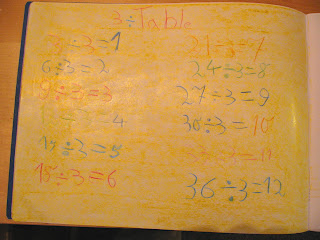 3÷Table
÷3=1
6÷3=2
9÷3=3
÷3=4
15÷3=5
18÷3=6
21÷3=7
24÷3=8
27÷3=9
30÷3=10
3=11
36÷3=12